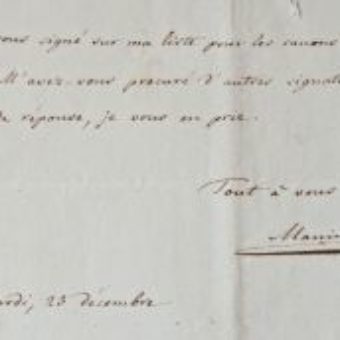 vous signé sur ma liste pour les canons
M'avez-vous procuré d'autres signat
de réponse, je vous en prie.
Tout à vous
Manin
ardi, 23 décembre